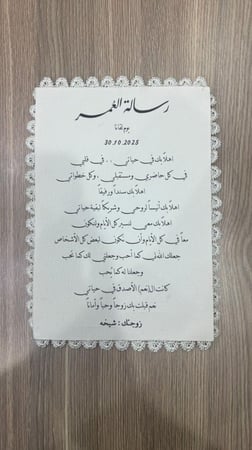 رسالة العُمر
يوم لقانا
30.10.2025
اهلاً بك في حياتي .. في قلبي
في كل حاضري ومستقبلي .. وكل خطواتي
اهلاً بك سنداً ورفيقاً
اهلاً بك أنيساً لروحي وشريكاً لبقية حياتي
اهلاً بك معي لنسير كل الأيام ولنكون
معاً في كل الأيام وأن نكون لبعض كل الأشخاص
جعلك الله لي كما أحب وجعلني لك كما تحب
وجعلنا له كما يُحب
كانت ال(نعم) الأصدق في حياتي
نعم قبلت بك زوجاً وحباً وأماناً
زوجتك : شيخه